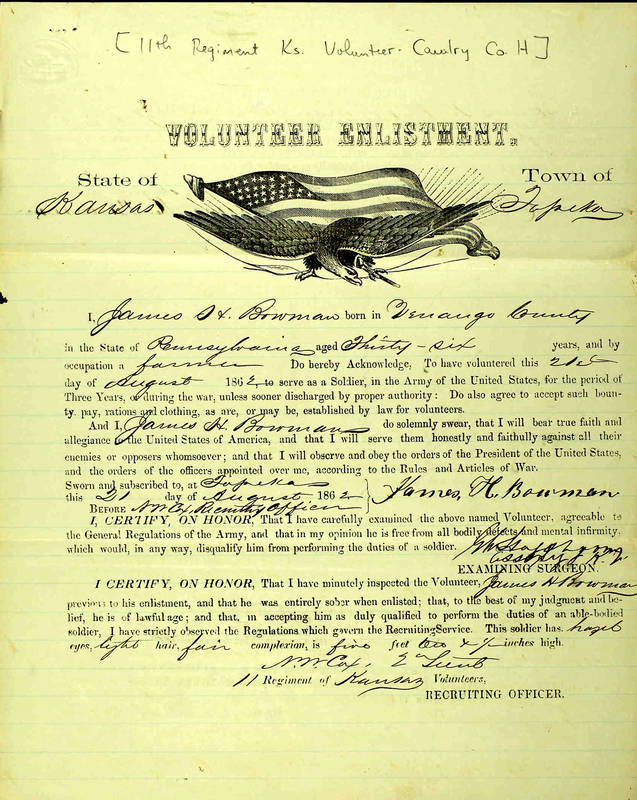 [11th Regiment Ks. Volunteer Cavalry Co H]
VOLUNTEER ENLISTMENT.
State of
Town of
Kansas
Topeka
I, James H. Bowman born in Venango County
in the State of Pennsylvania aged Thirty-six years, and by
occupation a farmer Do hereby Acknowledge, To have voluntered this 21st
day of August 1862 to serve as a Soldier, in the Army of the United States, for the period of
Three Years, or during the war, unless sooner discharged by proper authority: Do also agree to accept such boun-
ty, pay, rations and clothing, as are, or may be, established by law for volunteers.
And I, James H. Bowman do solemnly swear, that I will bear true faith and
allegiance to the United States of America, and that I will serve them honestly and faithfully against all their
enemies or opposers whomsoever; and that I will observe and obey the orders of the President of the United States,
and the orders of the officers appointed over me, according to the Rules and Articles of War.
Sworn and subscribed to, at Topeka
this 21 day of August 1862
James, H. Bowman
BEFORE N.W. Cox Recruiting Officer
I, CERTIFY, ON HONOR, That I have carefully examined the above named Volunteer, agreeable to
the General Regulations of the Army, and that in my opinion he is free from all bodily defects and mental infirmity,
which would, in any way, disqualify him from performing the duties of a soldier.
EXAMINING SURGEON.
I CERTIFY, ON HONOR, That I have minutely inspected the Volunteer, James H Bowman
previous to his enlistment, and that he was entirely sober when enlisted; that, to the best of my judgment and be-
lief, he is of lawful age; and that, in accepting him as duly qualified to perform the duties of an able-bodied
soldier, I have strictly observed the Regulations which govern the Recruiting Service. This soldier has hazel
eyes, light hair, fair complexion, is five feet ten & ½ inches high.
N.W. Cox, 2nd Lieut
11 Regiment of Kansas Volunteers,
RECRUITING OFFICER.